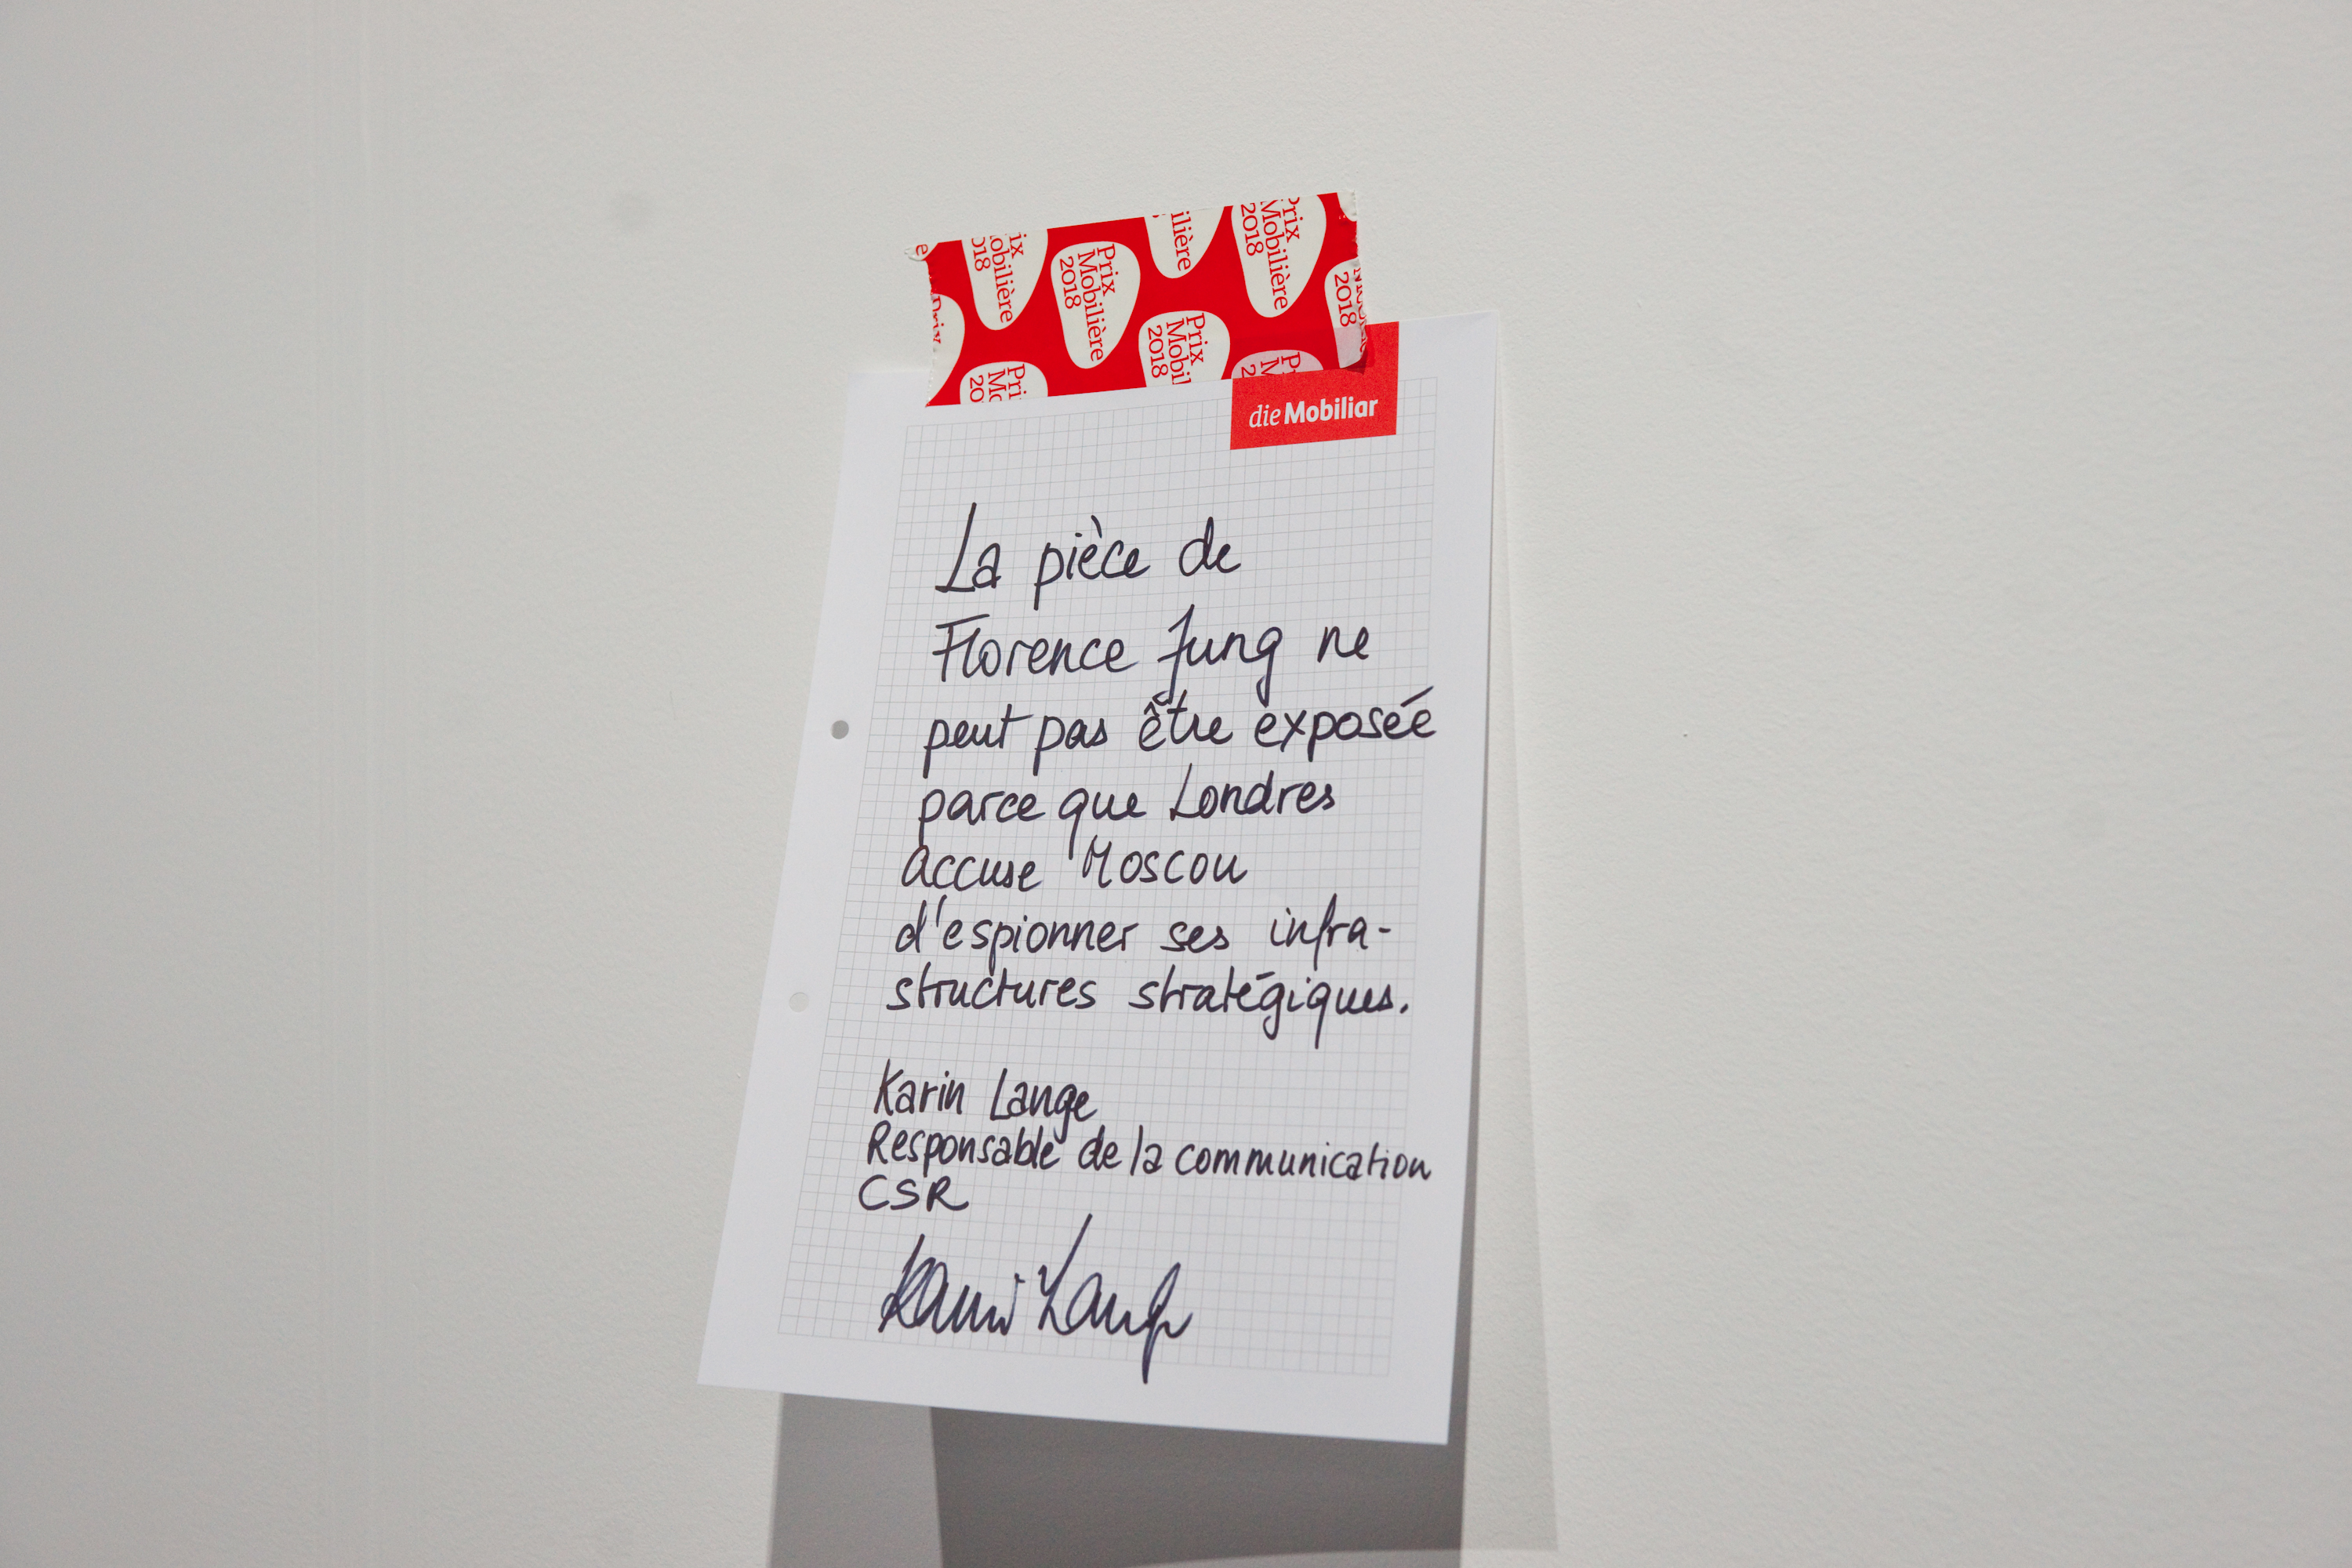 Prix
Mobilière
2018
Prix
Mobilière
2018
die Mobiliar
La pièce de
Florence Jung ne
peut pas être exposée
parce que Londres
accuse Moscou
d'espionner ses infra-
structures stratégiques.
Karin Lange
Responsable de la communication
CSR
Karin Lange